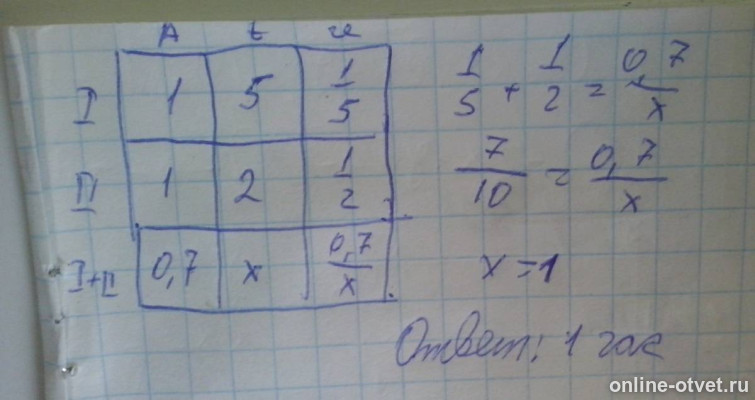 A t v
I 1 5 1/5
II 1 2 1/2
I+II 0,7 x 0,7/x
1/5 + 1/2 = 0,7/x
7/10 = 0,7/x
x=1
Ответ: 1 час
online-otvet.ru